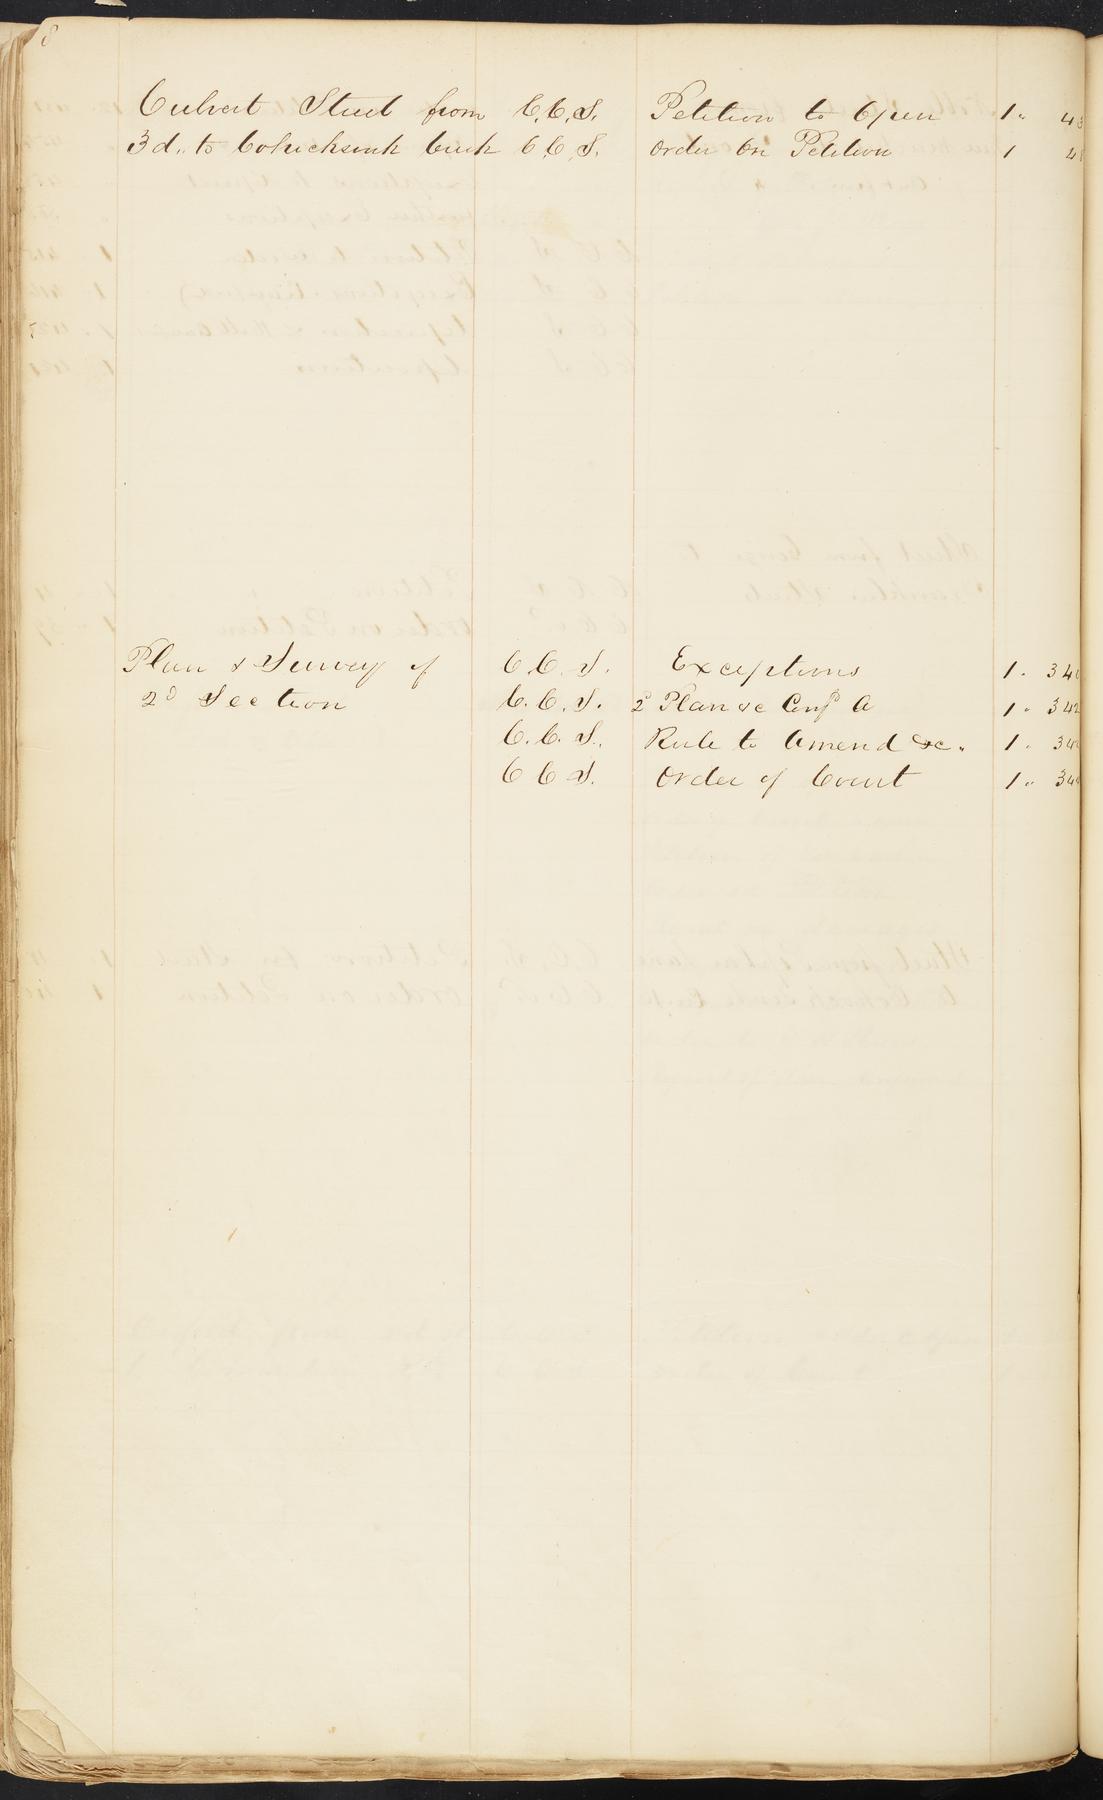 8
Culvert Street from C.C.S. Petition to Open 1" 4
3d. to Cohocksink Creek C C S. Order On Petition 1 4
Plan & Survey of C.C.S. Exceptions 1. 34
2d Section C.C.S. 2d Plan &c Conf'd A 1. 342
C.C.S. Rule to Amend &c. 1. 34
C C S. Order of Court 1" 34